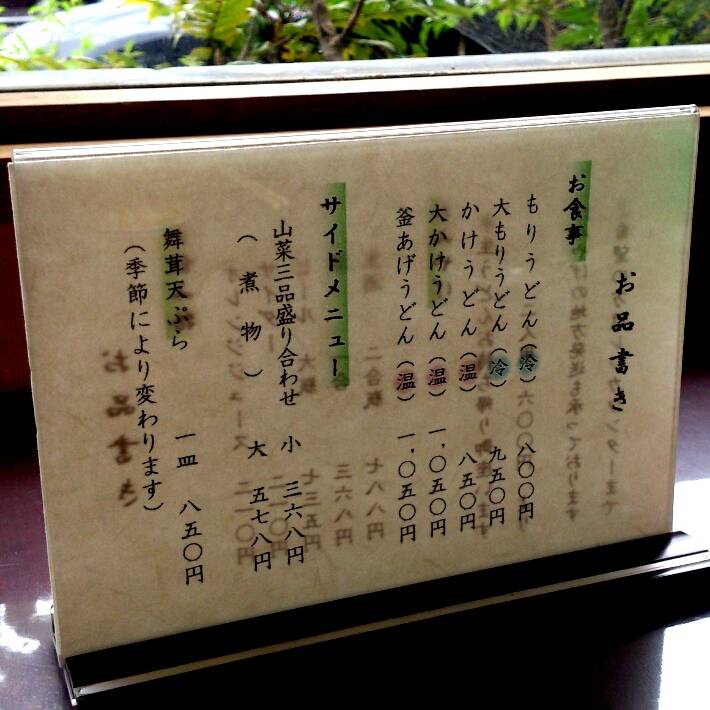 お品書き
お食事
もりうどん（冷） 八〇〇円
大もりうどん（冷） 九五〇円
かけうどん（温） 八五〇円
大かけうどん（温） 一、〇五〇円
釜あげうどん（温） 一、〇五〇円
サイドメニュー
山菜三品盛り合わせ 小 三六八円
（煮物） 大 五七八円
舞茸天ぷら 一皿 八五〇円
（季節により変わります）